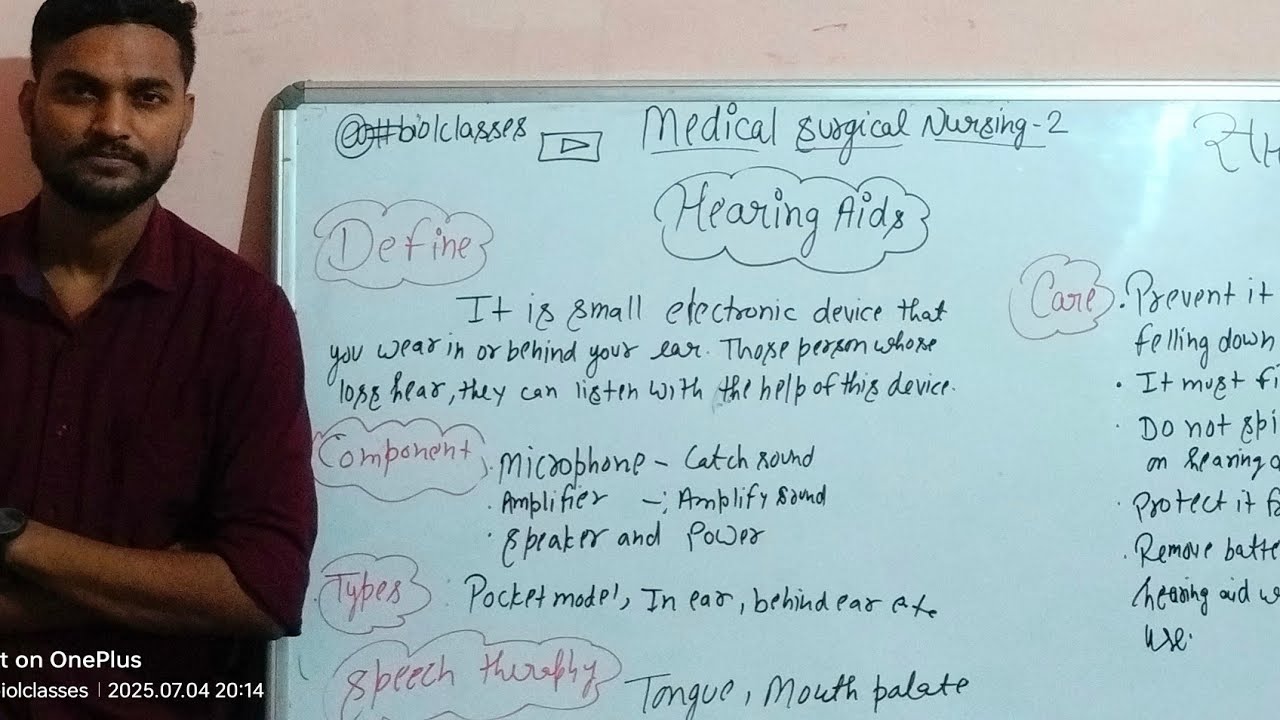 @#biolclasses
Medical surgical Nursing-2
Hearing Aids
Define
It is small electronic device that
you wear in or behind your ear. Those person whose
loss hear, they can listen with the help of this device.
Component
. Microphone – Catch sound
. Amplifier –; Amplify sound
. speaker and Power
Types : Pocket model, In ear, behind ear etc
speech theraphy Tongue, Mouth palate
Care . Prevent it
felling down
. It must fi
. Do not spi
on hearing a
. Protect it f
. Remove batte
hearing aid w
use.
t on OnePlus
iolclasses | 2025.07.04 20:14